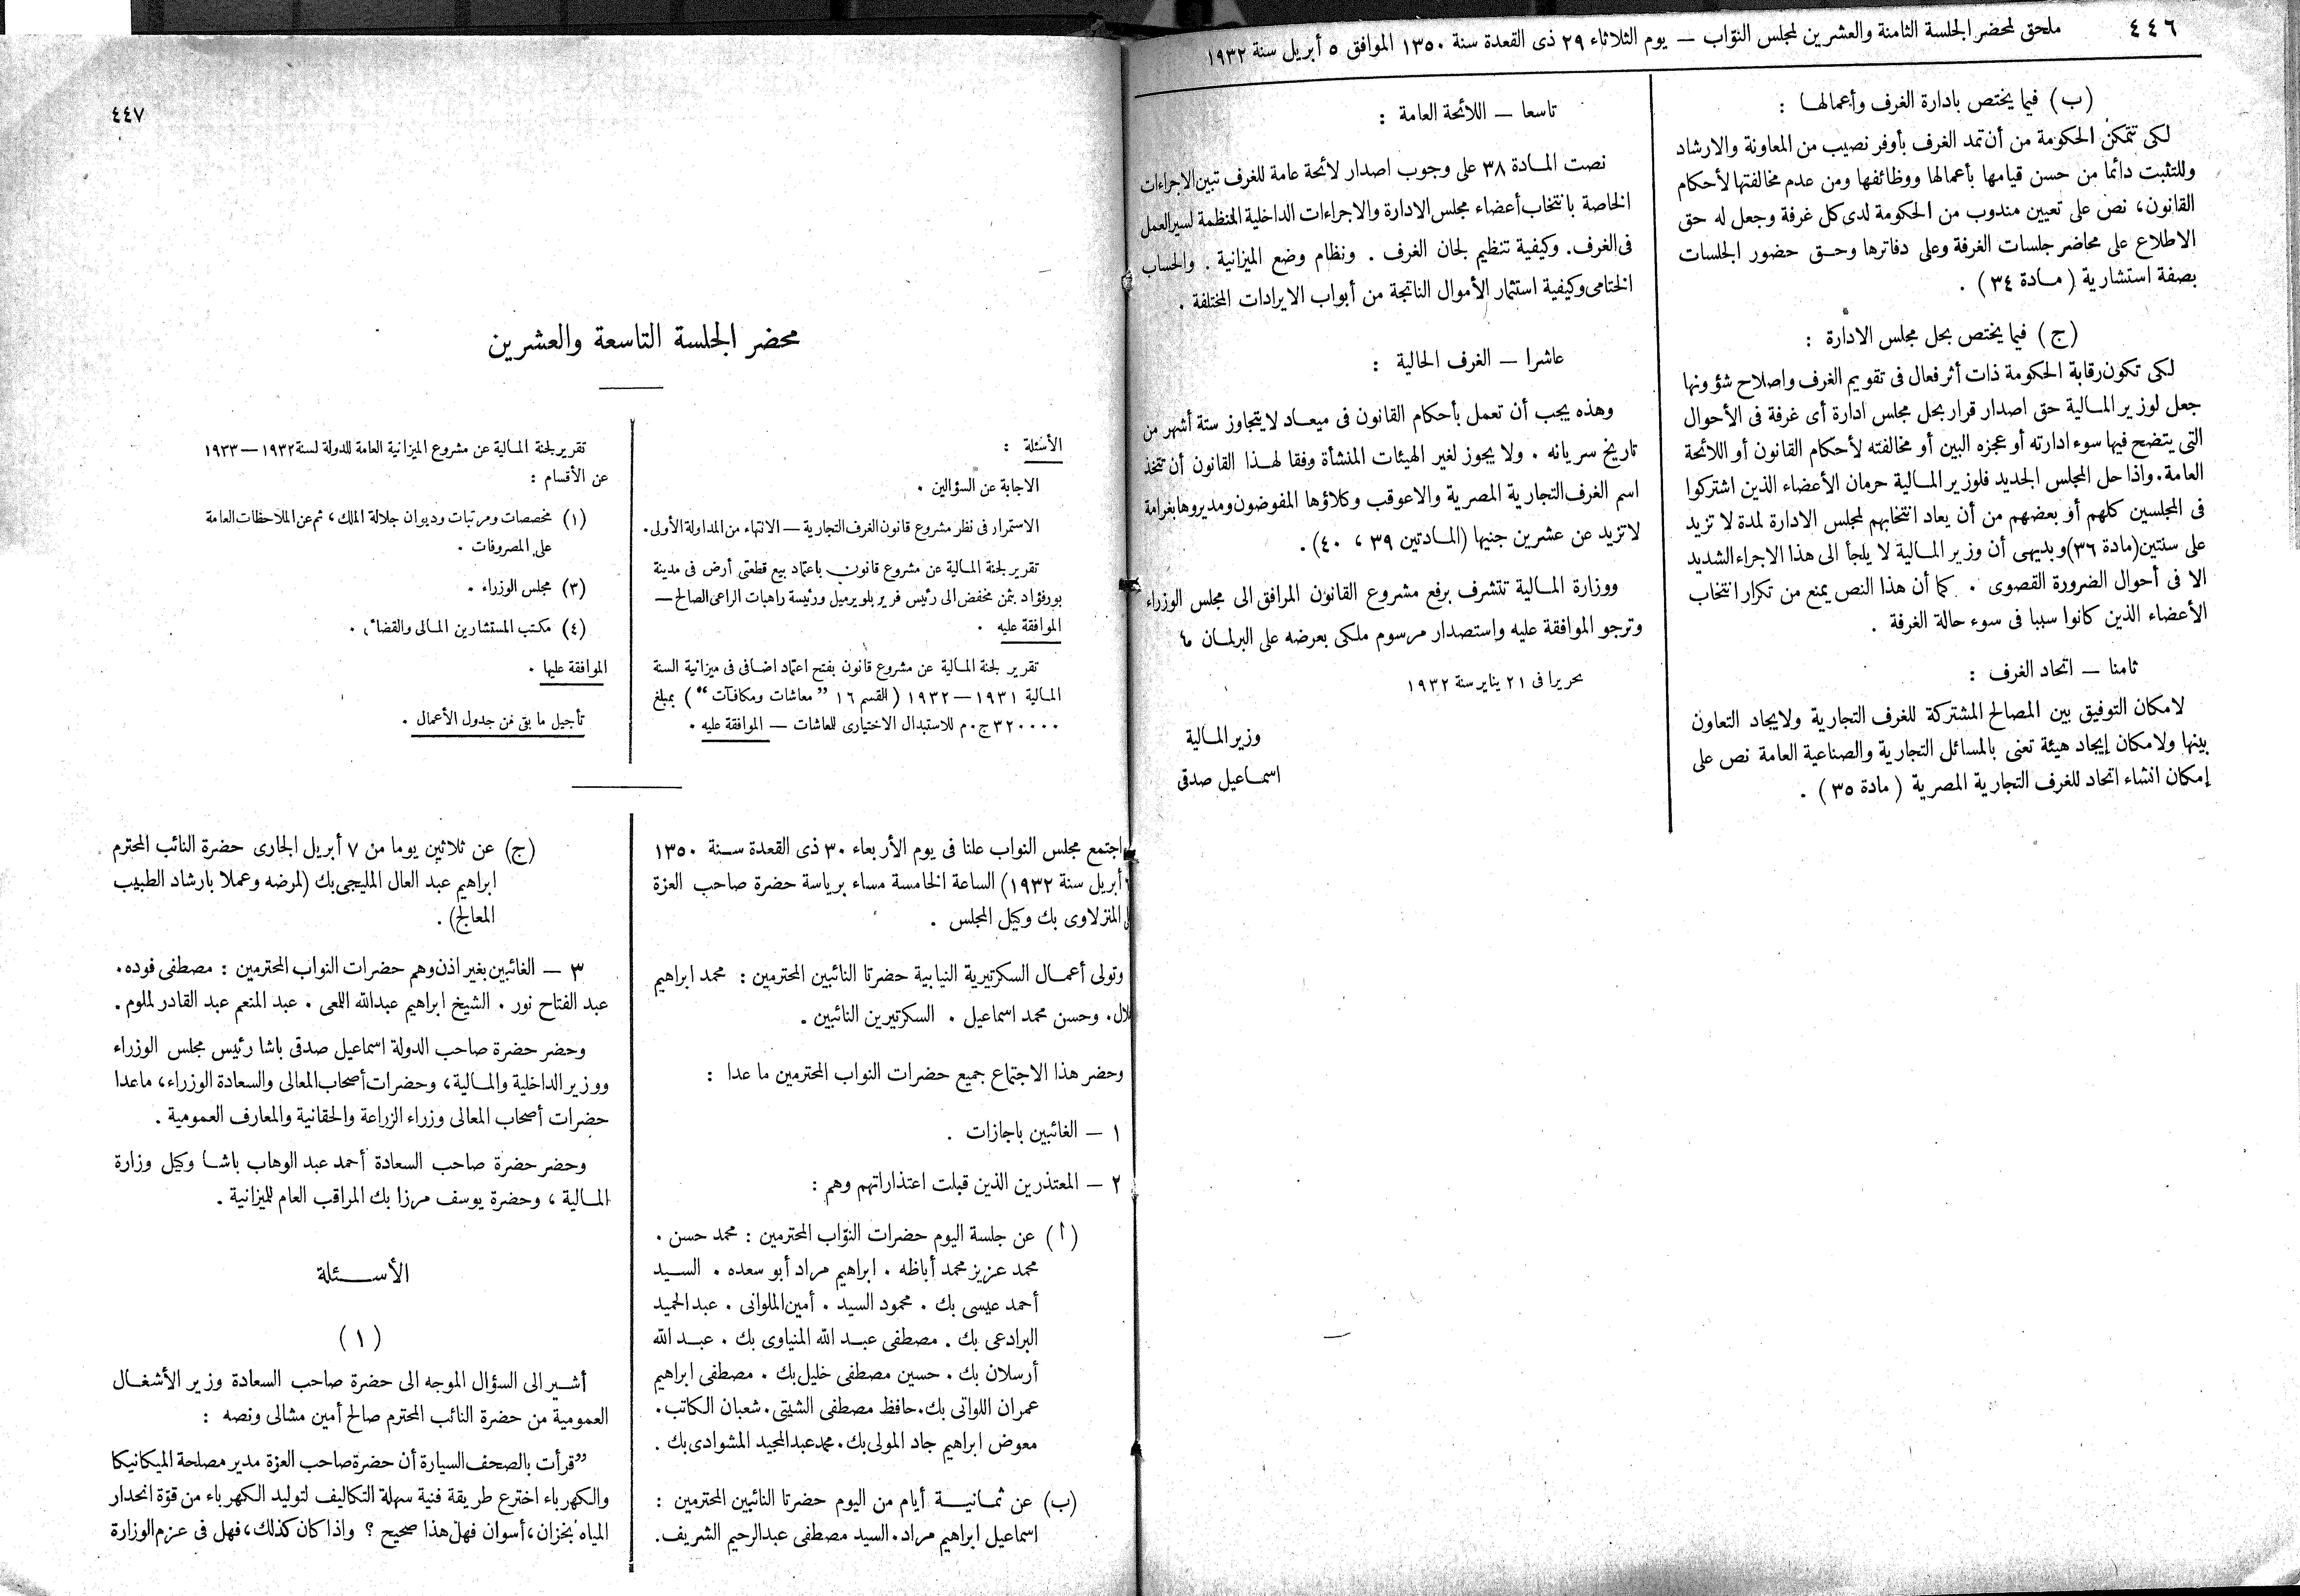 ٤٤٦
ملحق لمحضر الجلسة الثامنة والعشرين لمجلس النوّاب — يوم الثلاثاء ٢٩ ذى القعدة سنة ١٣٥٠ الموافق ٥ أبريل سنة ١٩٣٢
(ب) فيما يختص بادارة الغرف وأعمالها :
لكى تتمكن الحكومة من أن تمد الغرف بأوفر نصيب من المعاونة والارشاد
وللتثبت دائما من حسن قيامها بأعمالها ووظائفها ومن عدم مخالفتها لأحكام
القانون، نص على تعيين مندوب من الحكومة لدى كل غرفة وجعل له حق
الاطلاع على محاضر جلسات الغرفة وعلى دفاترها وحق حضور الجلسات
بصفة استشارية (مادة ٣٤) .
(ج) فيما يختص بحل مجلس الادارة :
لكى تكون رقابة الحكومة ذات أثر فعال فى تقويم الغرف واصلاح شؤونها
جعل لوزير المالية حق اصدار قرار بحل مجلس ادارة أى غرفة فى الأحوال
التى يتضح فيها سوء ادارته أو عجزه البين أو مخالفته لأحكام القانون أو اللائحة
العامة. واذا حل المجلس الجديد فلوزير المالية حرمان الأعضاء الذين اشتركوا
فى المجلسين كلهم أو بعضهم من أن يعاد انتخابهم لمجلس الادارة لمدة لا تزيد
على سنتين (مادة ٣٦) وبديهى أن وزير المالية لا يلجأ الى هذا الاجراء الشديد
الا فى أحوال الضرورة القصوى . كما أن هذا النص يمنع من تكرار انتخاب
الأعضاء الذين كانوا سببا فى سوء حالة الغرفة .
ثامنا — اتحاد الغرف :
لامكان التوفيق بين المصالح المشتركة للغرف التجارية ولايجاد التعاون
بينها ولامكان إيجاد هيئة تعنى بالمسائل التجارية والصناعية العامة نص على
إمكان انشاء اتحاد للغرف التجارية المصرية (مادة ٣٥) .
تاسعا — اللائحة العامة :
نصت المادة ٣٨ على وجوب اصدار لائحة عامة للغرف تبين الاجراءات
الخاصة بانتخاب أعضاء مجلس الادارة والاجراءات الداخلية المنظمة لسير العمل
فى الغرف. وكيفية تنظيم لجان الغرف . ونظام وضع الميزانية . والحساب
الختامى وكيفية استثمار الأموال الناتجة من أبواب الايرادات المختلفة .
عاشرا — الغرف الحالية :
وهذه يجب أن تعمل بأحكام القانون فى ميعاد لا يتجاوز ستة أشهر من
تاريخ سريانه . ولا يجوز لغير الهيئات المنشأة وفقا لهذا القانون أن تتخذ
اسم الغرف التجارية المصرية والا عوقب وكلاؤها المفوضون ومديروها بغرامة
لا تزيد عن عشرين جنيها (المادتين ٣٩ ، ٤٠) .
ووزارة المالية تتشرف برفع مشروع القانون المرافق الى مجلس الوزراء
وترجو الموافقة عليه واستصدار مرسوم ملكى بعرضه على البرلمان
تحريرا فى ٢١ يناير سنة ١٩٣٢
وزير المالية
اسماعيل صدقى
٤٤٧
محضر الجلسة التاسعة والعشرين
الأسئلة :
الاجابة عن السؤالين .
الاستمرار فى نظر مشروع قانون الغرف التجارية — الانتهاء من المداولة الأولى .
تقرير لجنة المالية عن مشروع قانون باعتماد بيع قطعتى أرض فى مدينة
بورفؤاد بثمن مخفض الى رئيس فرير بلوير ميل ورئيسة راهبات الراعى الصالح —
الموافقة عليه .
تقرير لجنة المالية عن مشروع قانون بفتح اعتماد اضافى فى ميزانية السنة
المالية ١٩٣١ — ١٩٣٢ (القسم ١٦ ”معاشات ومكافآت“) بمبلغ
٣٢٠٠٠٠ ج.م للاستبدال الاختيارى للمعاشات — الموافقة عليه .
تقرير لجنة المالية عن مشروع الميزانية العامة للدولة لسنة ١٩٣٢ — ١٩٣٣
عن الأقسام :
(١) مخصصات ومرتبات وديوان جلالة الملك، ثم عن الملاحظات العامة
على المصروفات .
(٣) مجلس الوزراء .
(٤) مكتب المستشارين المالى والقضائى .
الموافقة عليها .
تأجيل ما بقى من جدول الأعمال .
اجتمع مجلس النواب علنا فى يوم الأربعاء ٣٠ ذى القعدة سنة ١٣٥٠
أبريل سنة ١٩٣٢) الساعة الخامسة مساء برياسة حضرة صاحب العزة
المنزلاوى بك وكيل المجلس .
وتولى أعمال السكرتيرية النيابية حضرتا النائبين المحترمين : محمد ابراهيم
لال . وحسن محمد اسماعيل . السكرتيرين النائبين .
وحضر هذا الاجتماع جميع حضرات النواب المحترمين ما عدا :
١ — الغائبين باجازات .
٢ — المعتذرين الذين قبلت اعتذاراتهم وهم :
(أ) عن جلسة اليوم حضرات النوّاب المحترمين : محمد حسن .
محمد عزيز محمد أباظه . ابراهيم مراد أبو سعده . السيد
أحمد عيسى بك . محمود السيد . أمين الملوانى . عبد الحميد
البرادعى بك . مصطفى عبد الله المنياوى بك . عبد الله
أرسلان بك . حسين مصطفى خليل بك . مصطفى ابراهيم
عمران اللواتى بك . حافظ مصطفى الشيتى . شعبان الكاتب .
معوض ابراهيم جاد المولى بك . محمد عبد المجيد المشوادى بك .
(ب) عن ثمانية أيام من اليوم حضرتا النائبين المحترمين :
اسماعيل ابراهيم مراد . السيد مصطفى عبد الرحيم الشريف .
(ج) عن ثلاثين يوما من ٧ أبريل الجارى حضرة النائب المحترم
ابراهيم عبد العال المليجى بك (لمرضه وعملا بارشاد الطبيب
المعالج) .
٣ — الغائبين بغير اذن وهم حضرات النواب المحترمين : مصطفى فوده .
عبد الفتاح نور . الشيخ ابراهيم عبد الله اللعى . عبد المنعم عبد القادر لملوم .
وحضر حضرة صاحب الدولة اسماعيل صدقى باشا رئيس مجلس الوزراء
ووزير الداخلية والمالية، وحضرات أصحاب المعالى والسعادة الوزراء، ماعدا
حضرات أصحاب المعالى وزراء الزراعة والحقانية والمعارف العمومية .
وحضر حضرة صاحب السعادة أحمد عبد الوهاب باشا وكيل وزارة
المالية ، وحضرة يوسف مرزا بك المراقب العام للميزانية .
الأسئلة
(١)
أشير الى السؤال الموجه الى حضرة صاحب السعادة وزير الأشغال
العمومية من حضرة النائب المحترم صالح أمين مشالى ونصه :
”قرأت بالصحف السيارة أن حضرة صاحب العزة مدير مصلحة الميكانيكا
والكهرباء اخترع طريقة فنية سهلة التكاليف لتوليد الكهرباء من قوّة انحدار
المياه بخزان، أسوان فهل هذا صحيح ؟ واذا كان كذلك، فهل فى عزم الوزارة